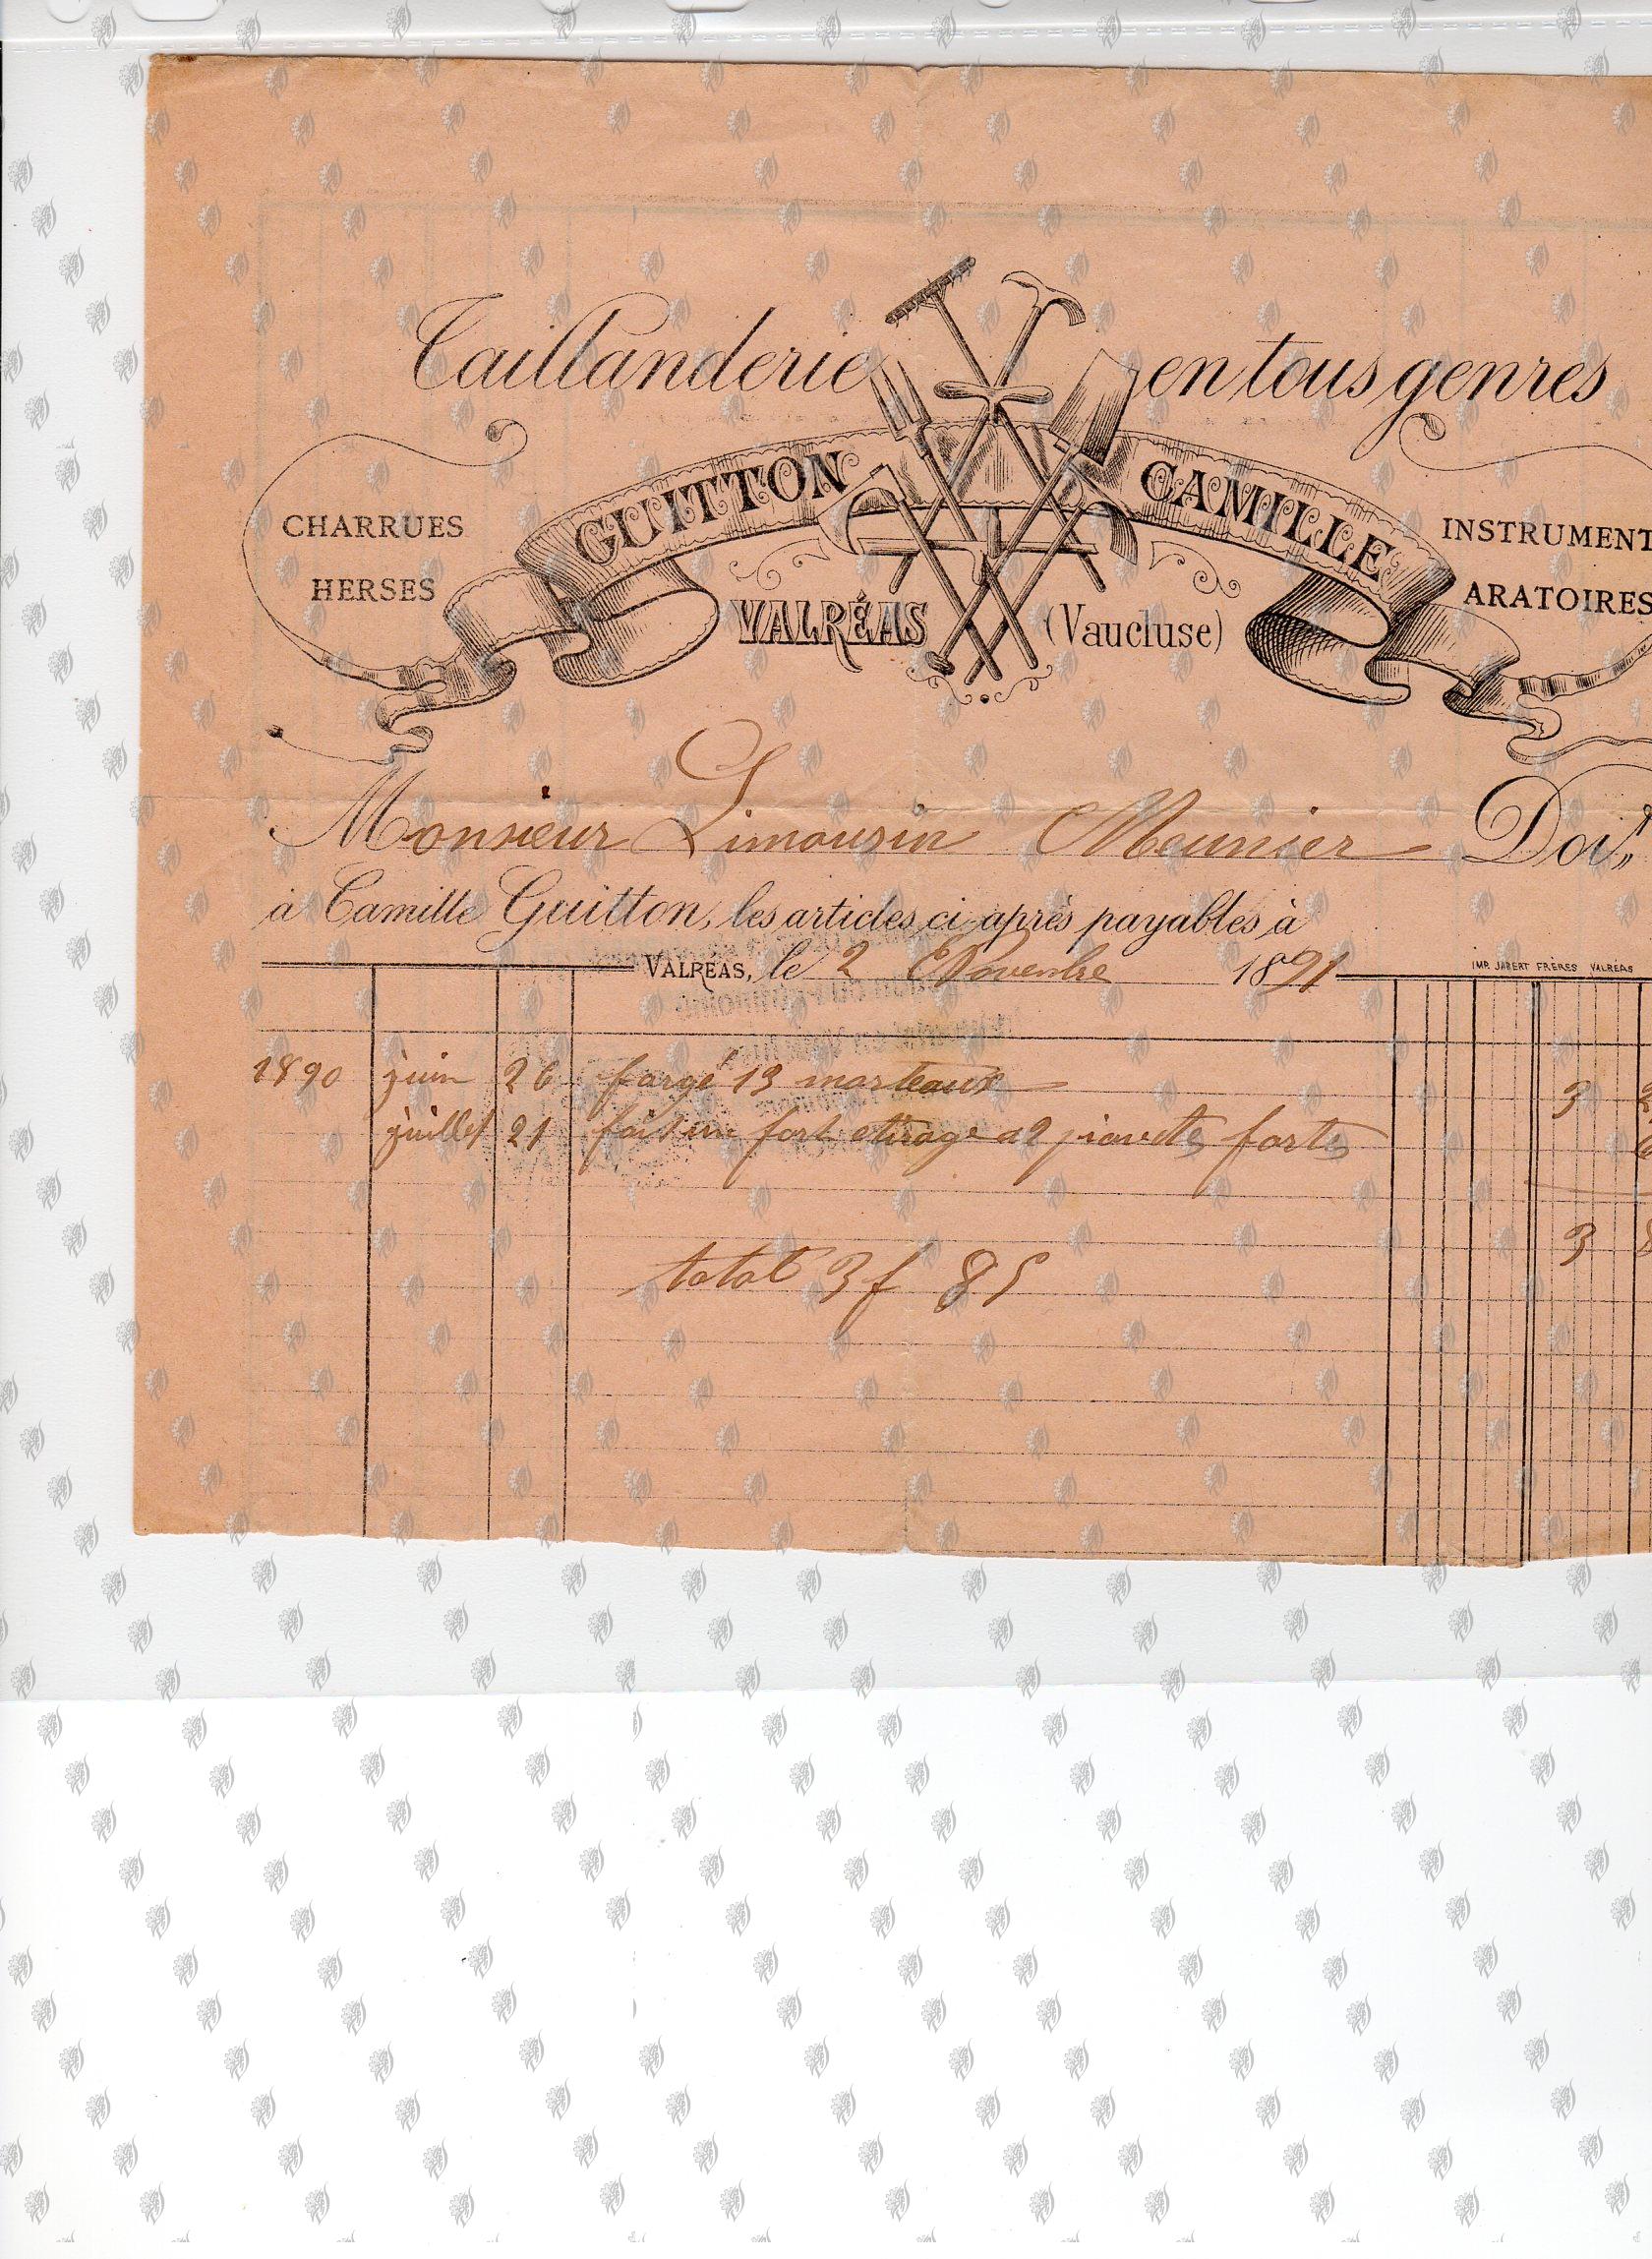 Taillanderie en tous genres
GUITTON CAMILLE
CHARRUES
HERSES
INSTRUMENT
ARATOIRES
VALRÉAS (Vaucluse)
Monsieur Limouzin Meunier Doit
à Camille Guitton, les articles ci-après payables à
VALRÉAS, le 2 Novembre 1891
IMP. JABERT FRÈRES VALRÉAS
1890 juin 26 forgé 13 marteaux 3
juillet 21 fait un fort etirage a 2 forts
3
total 3 f 85